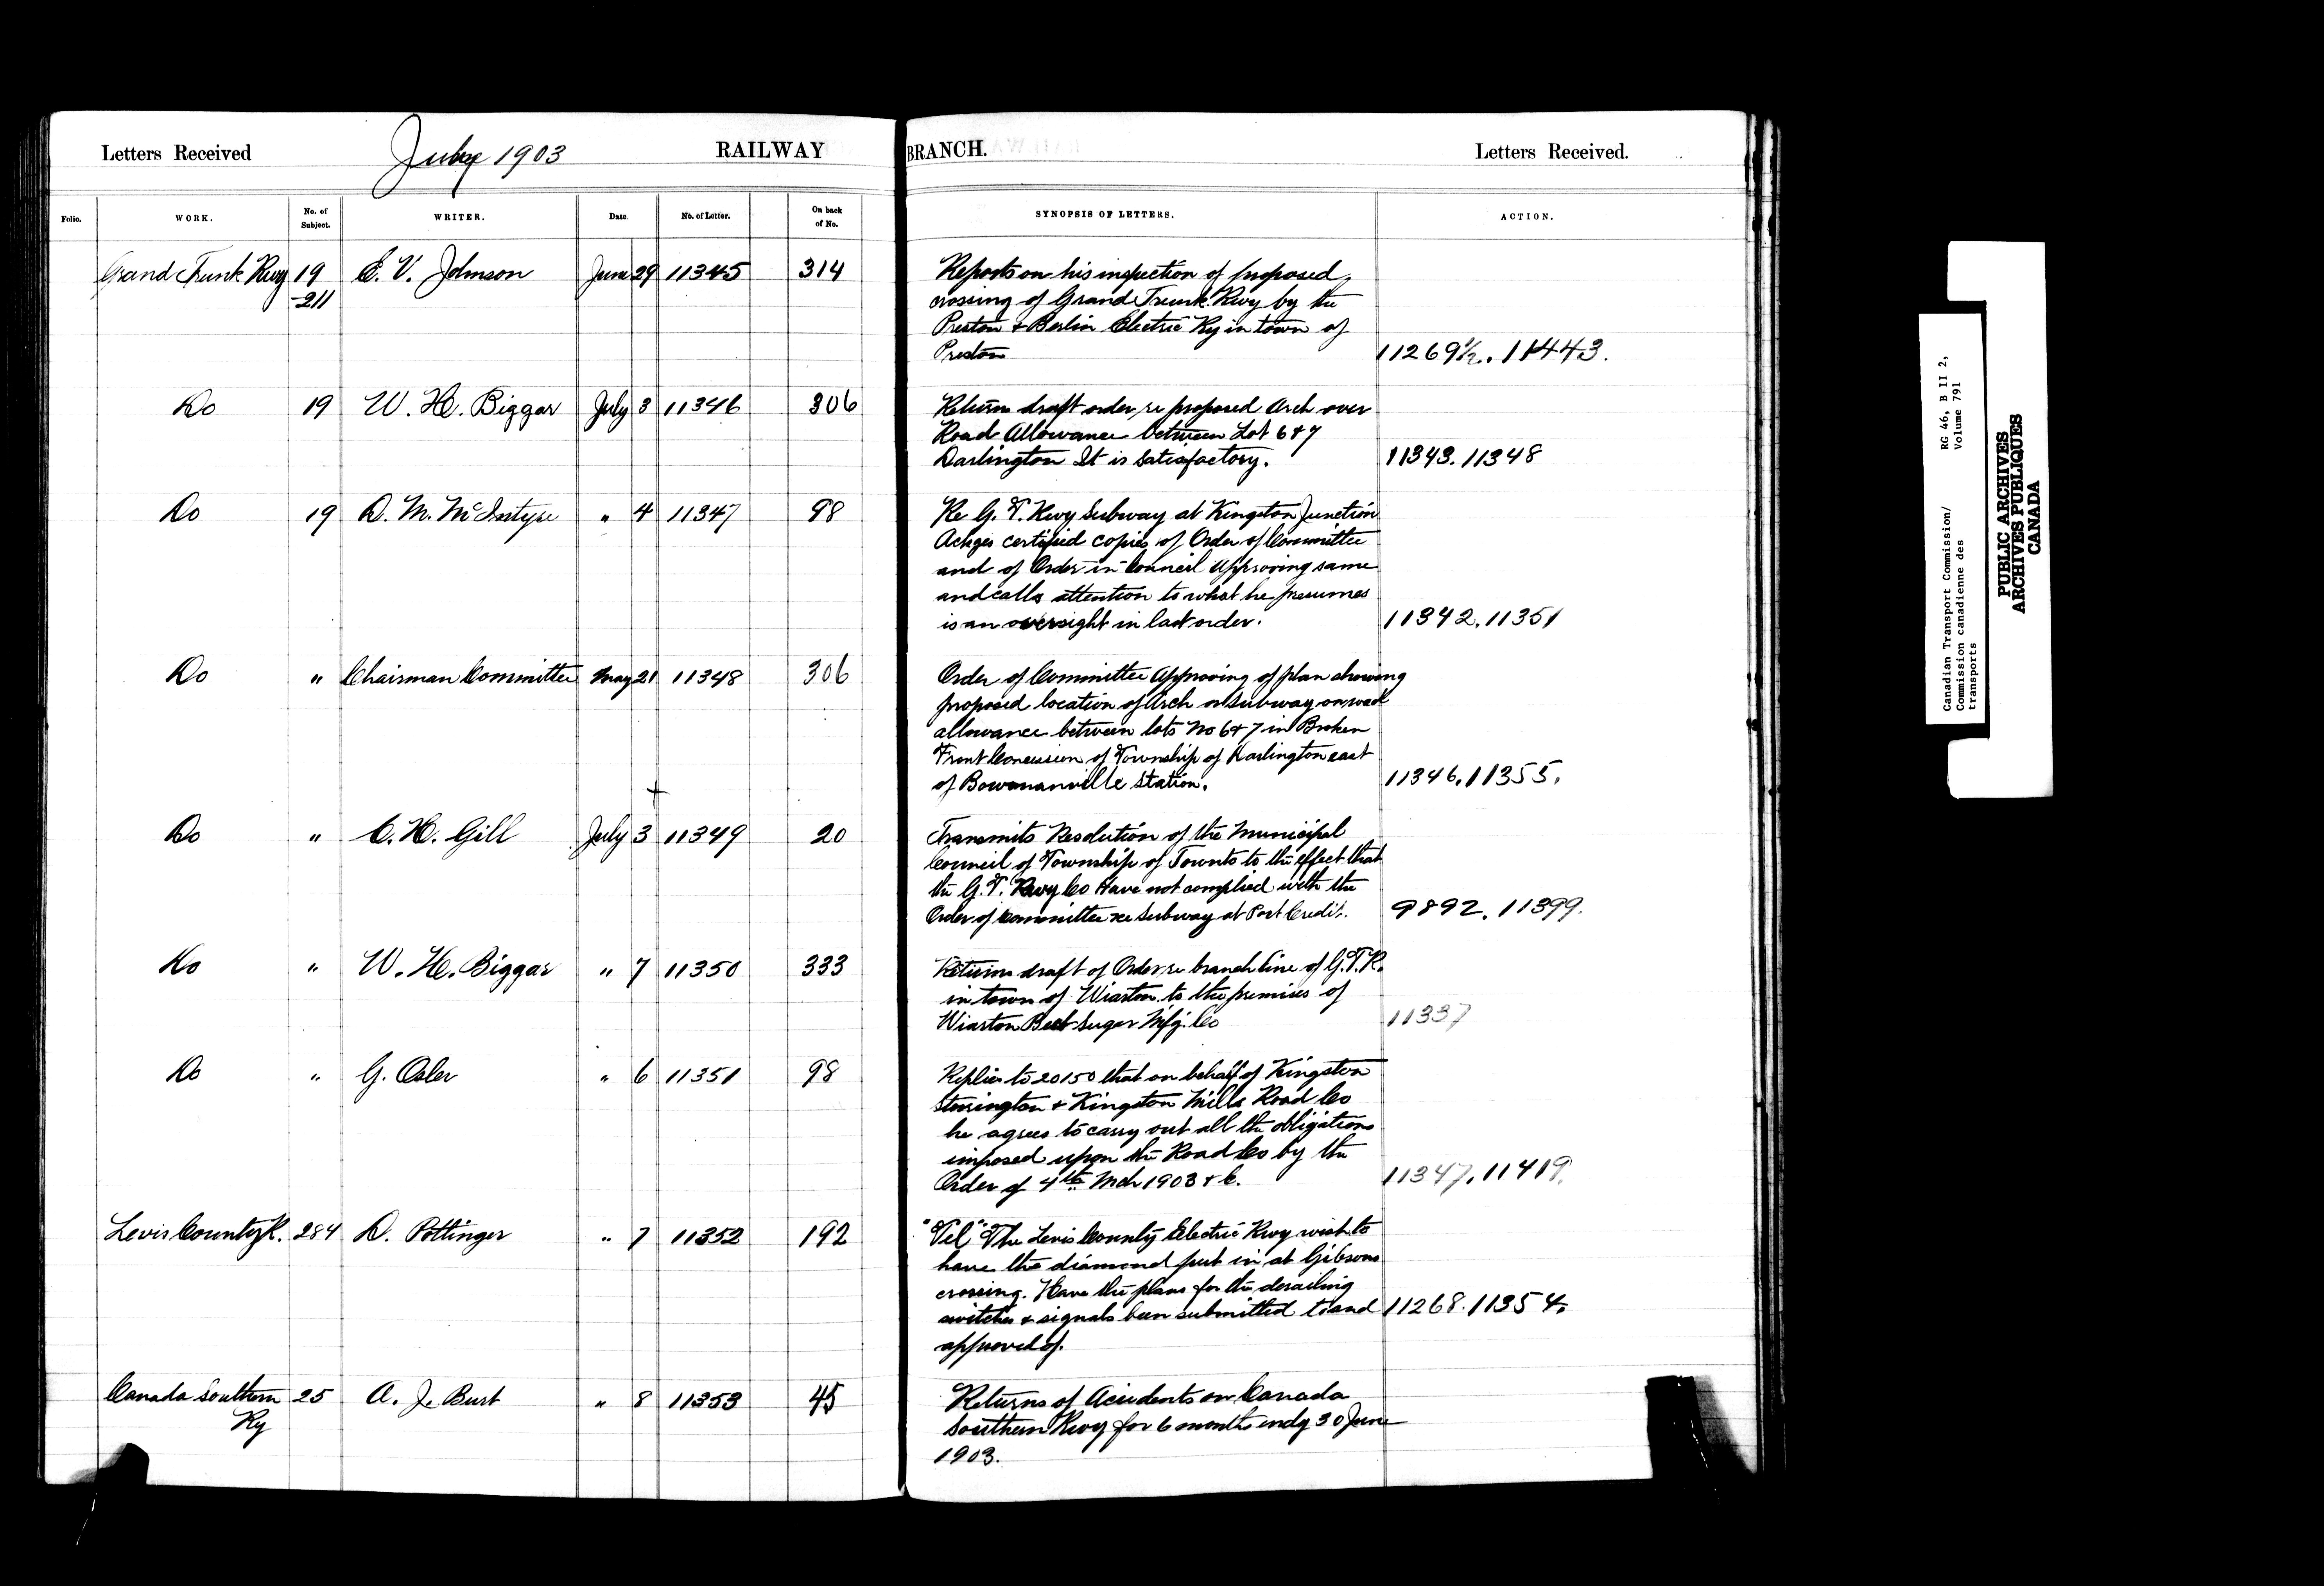 Letters Received July 1903 RAILWAY BRANCH. Letters Received.
Folio. WORK. No. of Subject. WRITER. Date. No. of Letter. On back of No. SYNOPSIS OF LETTERS. ACTION.
Grand Trunk Rwy 19 E. V. Johnson June 29 11345 314 Reports on his inspection of proposed
-211 crossing of Grand Trunk Rwy by the
Preston & Berlin Electric Ry in town of
Preston 11269½. 11443.
Do 19 W. H. Biggar July 3 11346 306 Returns draft order re proposed Arch over
Road Allowance between Lot 6 & 7
Darlington It is satisfactory. 11343. 11348
Do 19 D. M. McIntyre " 4 11347 98 Re G. T. Rwy Subway at Kingston Junction
Ackges certified copies of Order of Committee
and of Order in Council approving same
and calls attention to what he presumes
is an oversight in last order. 11342. 11351
Do " Chairman Committee May 21 11348 306 Order of Committee Approving of plan showing
proposed location of Arch or subway on road
allowance between lots No 6 & 7 in Broken
Front Concession of Township of Darlington east
of Bowmanville Station. 11346. 11355.
Do " C. H. Gill July 3 11349 20 Transmits Resolution of the Municipal
Council of Township of to the effect that
the G. T. Rwy Co Have not complied with the
Order of Committee re Subway at Port Credit. 9892. 11399.
Do " W. H. Biggar " 7 11350 333 Returns draft of Order re branch line of G. T. R.
in town of Wiarton to the premises of
Wiarton Beet Sugar Mfg. Co 11337
Do " G. Osler " 6 11351 98 Replies to 20150 that on behalf of Kingston
Storrington & Kingston Mills Road Co
he agrees to carry out all the obligations
imposed upon the Road Co by the
Order of 4th Mch 1903 &c. 11347. 11419.
Levis County R. 284 D. Pottinger " 7 11352 192 "Tel" The Levis County Electric Rwy wish to
have the diamond put in at Gibsons
crossing. Have the plans for the derailing
switches & signals been submitted to and 11268. 11354.
approved of.
Canada Southern 25 A. J. Burt " 8 11353 45 Returns of Accidents on Canada
Ry Southern Rwy for 6 months endg 30 June
1903.
Canadian Transport Commission/ RG 46, B II 2,
Commission canadienne des Volume 791
transports
PUBLIC ARCHIVES
ARCHIVES PUBLIQUES
CANADA